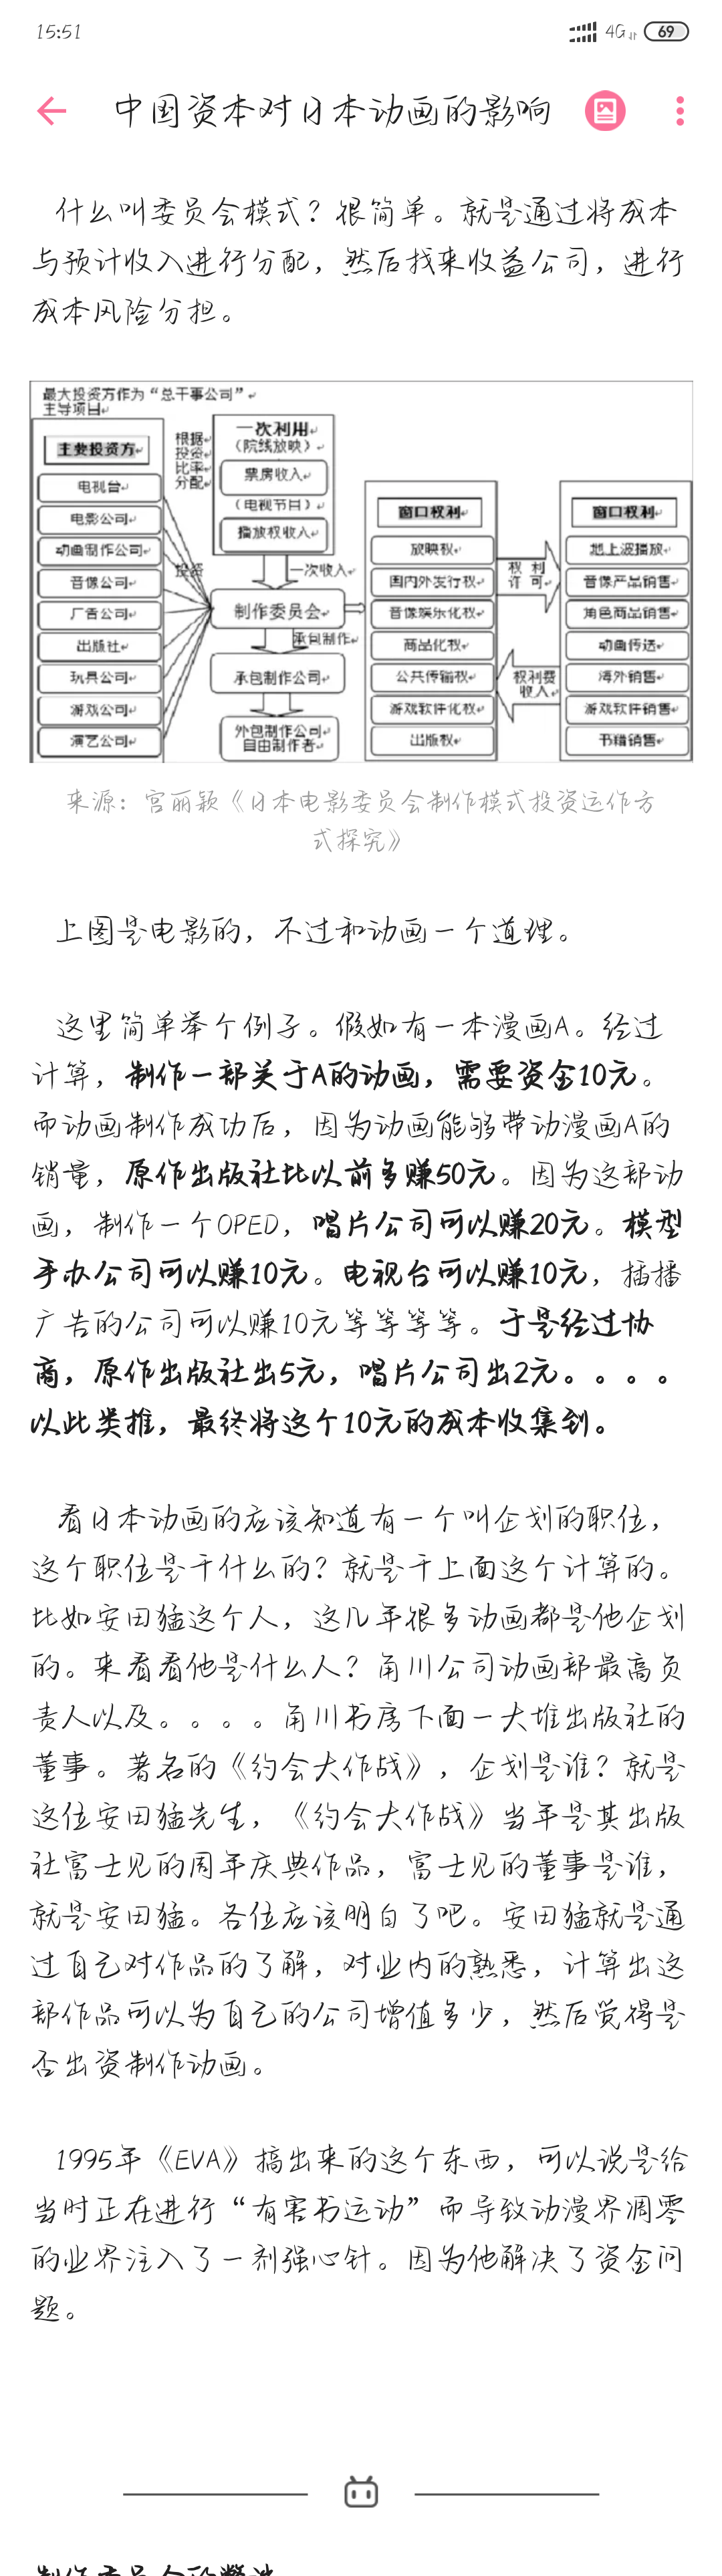 15:51
4G
69
中国资本对日本动画的影响
什么叫委员会模式？很简单。就是通过将成本
与预计收入进行分配，然后找来收益公司，进行
成本风险分担。
最大投资方作为“总干事公司”
主导项目
主要投资方
电视台
电影公司
动画制作公司
音像公司
广告公司
出版社
玩具公司
游戏公司
演艺公司
根据
投资
比率
分配
投资
一次利用
（院线放映）
票房收入
（电视节目）
播放权收入
一次收入
制作委员会
承包制作
承包制作公司
外包制作公司
自由制作者
窗口权利
放映权
国内外发行权
音像娱乐化权
商品化权
公共传输权
游戏软件化权
出版权
权 利
许 可
权利费
收入
窗口权利
地上波播放
音像产品销售
角色商品销售
动画传送
海外销售
游戏软件销售
书籍销售
来源：宫丽颖《日本电影委员会制作模式投资运作方
式探究》
上图是电影的，不过和动画一个道理。
这里简单举个例子。假如有一本漫画A。经过
计算，制作一部关于A的动画，需要资金10元。
而动画制作成功后，因为动画能够带动漫画A的
销量，原作出版社比以前多赚50元。因为这部动
画，制作一个OPED，唱片公司可以赚20元。模型
手办公司可以赚10元。电视台可以赚10元，插播
广告的公司可以赚10元等等等等。于是经过协
商，原作出版社出5元，唱片公司出2元。。。。
以此类推，最终将这个10元的成本收集到。
看日本动画的应该知道有一个叫企划的职位，
这个职位是干什么的？就是干上面这个计算的。
比如安田猛这个人，这几年很多动画都是他企划
的。来看看他是什么人？角川公司动画部最高负
责人以及。。。。角川书房下面一大堆出版社的
董事。著名的《约会大作战》，企划是谁？就是
这位安田猛先生，《约会大作战》当年是其出版
社富士见的周年庆典作品，富士见的董事是谁，
就是安田猛。各位应该明白了吧。安田猛就是通
过自己对作品的了解，对业内的熟悉，计算出这
部作品可以为自己的公司增值多少，然后觉得是
否出资制作动画。
1995年《EVA》搞出来的这个东西，可以说是给
当时正在进行“有害书运动”而导致动漫界凋零
的业界注入了一剂强心针。因为他解决了资金问
题。